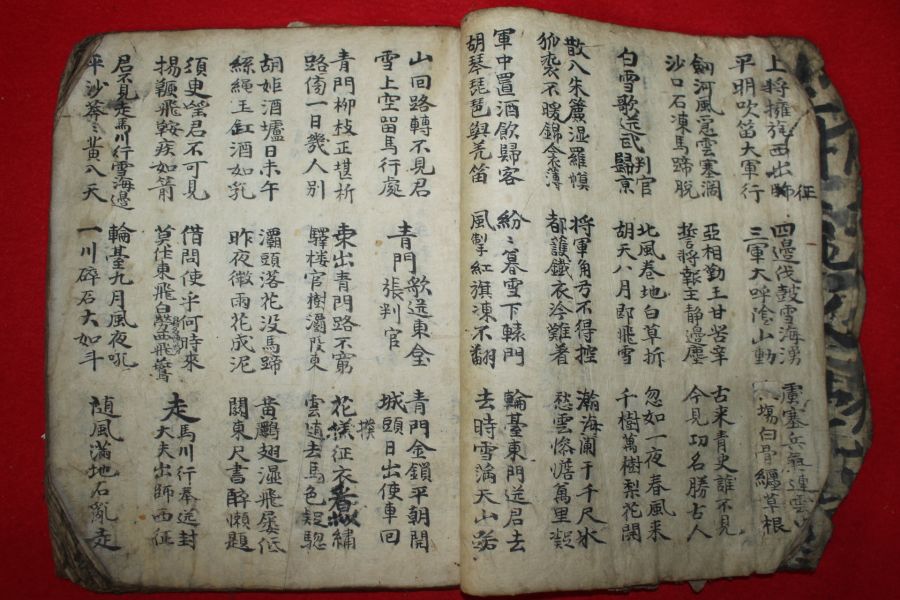 上將擁旄西出師征
平明吹笛大軍行
四邊伐鼓雪海湧
三軍大呼陰山動
虜塞兵氣連雲
場白骨纏草根
劍河風急雲塞濶
沙口石凍馬蹄脫
亞相勤王甘苦辛
誓將報主靜邊塵
古来青史誰不見
今見功名勝古人
白雪歌送武判官歸京
北風卷地白草折
胡天八月即飛雪
忽如一夜春風来
千樹萬樹梨花開
散入朱簾湿羅幙
狐裘不暖錦衾薄
將軍角弓不得控
都護鐵衣冷難着
瀚海闌干千尺氷
愁雲慘憺萬里凝
軍中置酒飲歸客
胡琴琵琶與羌笛
紛〻暮雪下轅門
風掣紅旗凍不翻
輪臺東門送君去
去時雪滿天山路
山回路轉不見君
雪上空留馬行處
青門歌送東臺
張判官
青門金鎖平朝開
城頭日出使車回
青門柳枝正堪折
路傍一日幾人別
東出青門路不窮
驛楼官樹灞陵東
花撲征衣看似繡
雲随去馬色疑驄
胡姬酒壚日未午
絲繩玉缸酒如乳
灞頭落花没馬蹄
昨夜微雨花成泥
黃鸝翅湿飛屡低
關東尺書醉懶題
須臾望君不可見
揚鞭飛鞍疾如箭
借問使乎何時來
莫作東飛西飛
走馬川行奉送封
大夫出師西征
君不見走馬川行雪海邊
平沙莽〻黃入天
輪臺九月風夜吼
一川碎石大如斗
随風滿地石亂走